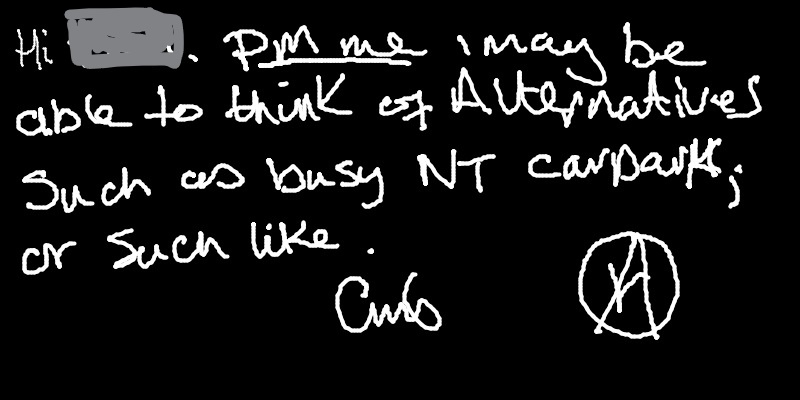 Hi . PM me i may be
able to think of Alternatives
Such as busy NT carpark,
or such like.